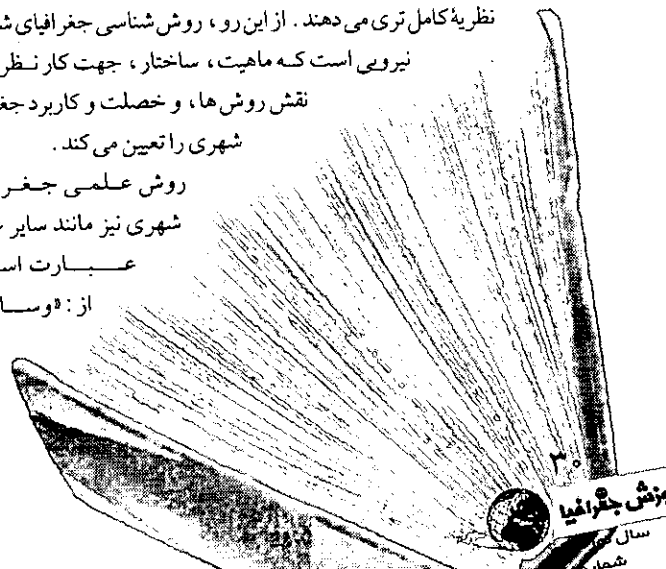 نظریهٔ کامل تری می دهند. از این رو، روش شناسی جغرافیای
نیرویی است که ماهیت، ساختار، جهت کار
نقش روش ها، و خصلت و کاربرد
شهری را تعیین می کند.
روش علمی
شهری نیز مانند سایر
عبارت
از: «
۳۰
جغرافیا
سال